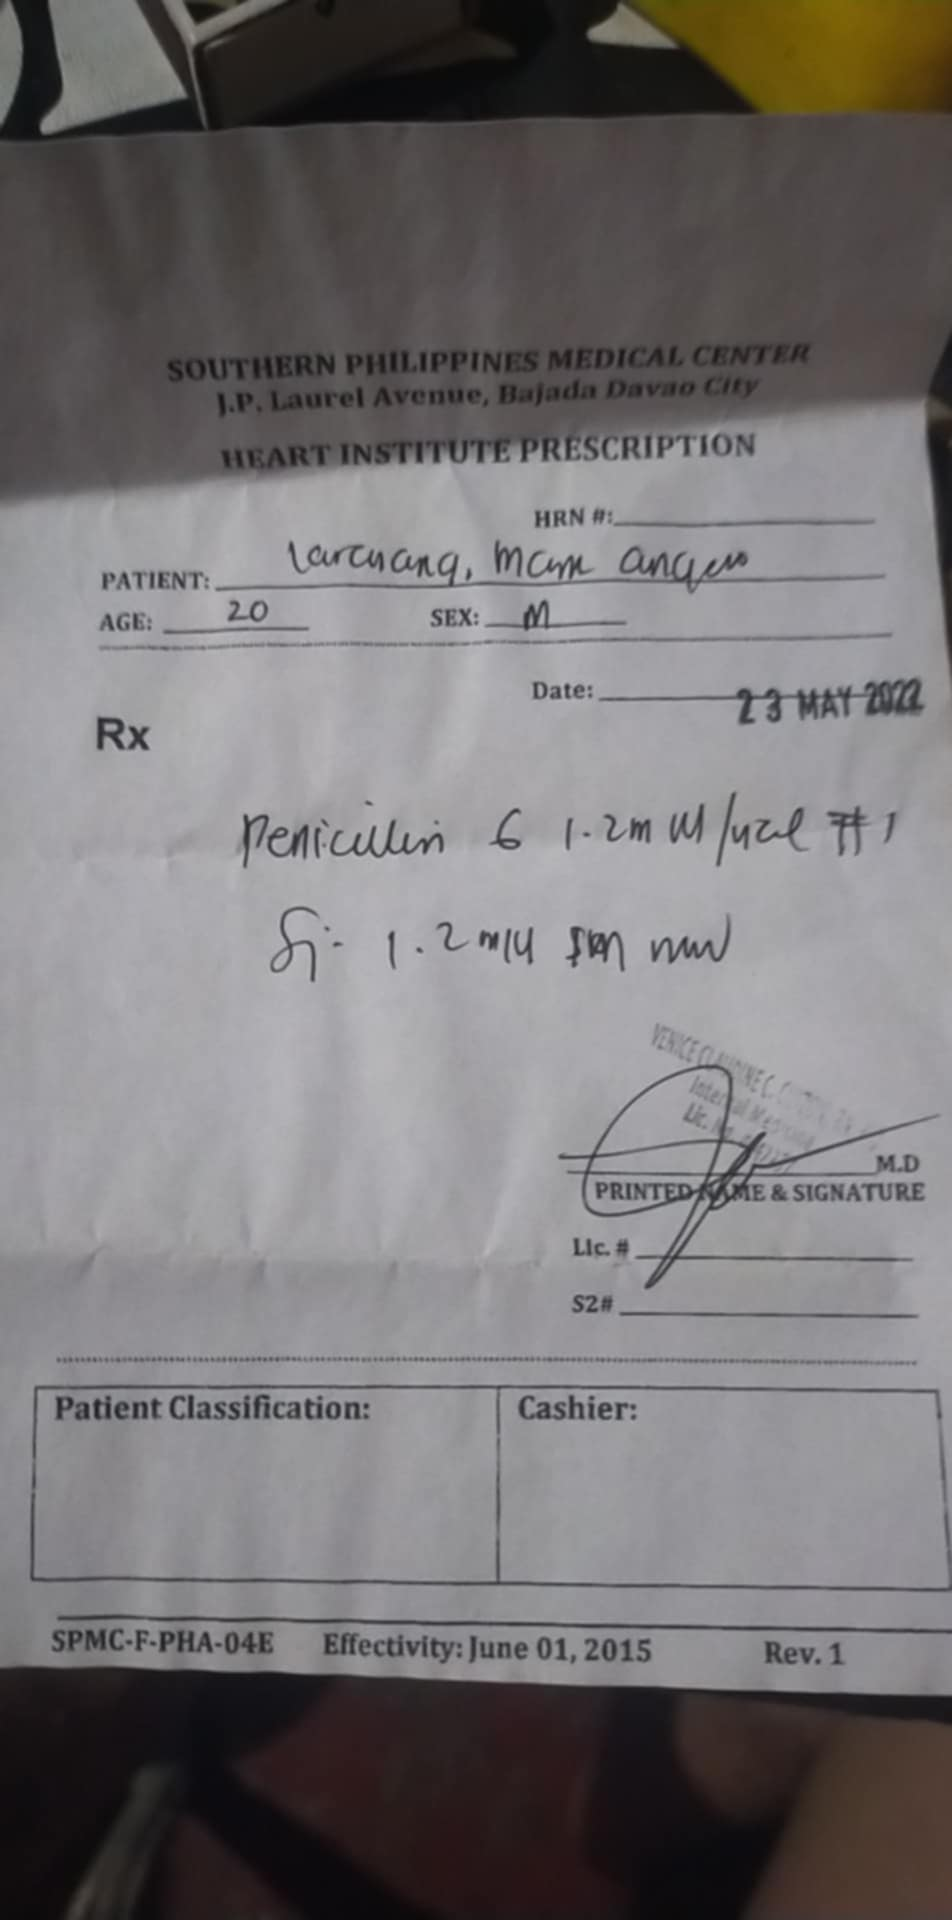 SOUTHERN PHILIPPINES MEDICAL CENTER
J.P. Laurel Avenue, Bajada Davao City
HEART INSTITUTE PRESCRIPTION
HRN #:
PATIENT:
AGE: 20 SEX: M
Date: 23 MAY 2022
Rx
Penicillin G 1.2m IU/vial #1
1.2 mIU
VENICE
M.D
PRINTED NAME & SIGNATURE
Lic. #
S2#
Patient Classification: Cashier:
SPMC-F-PHA-04E Effectivity: June 01, 2015 Rev. 1